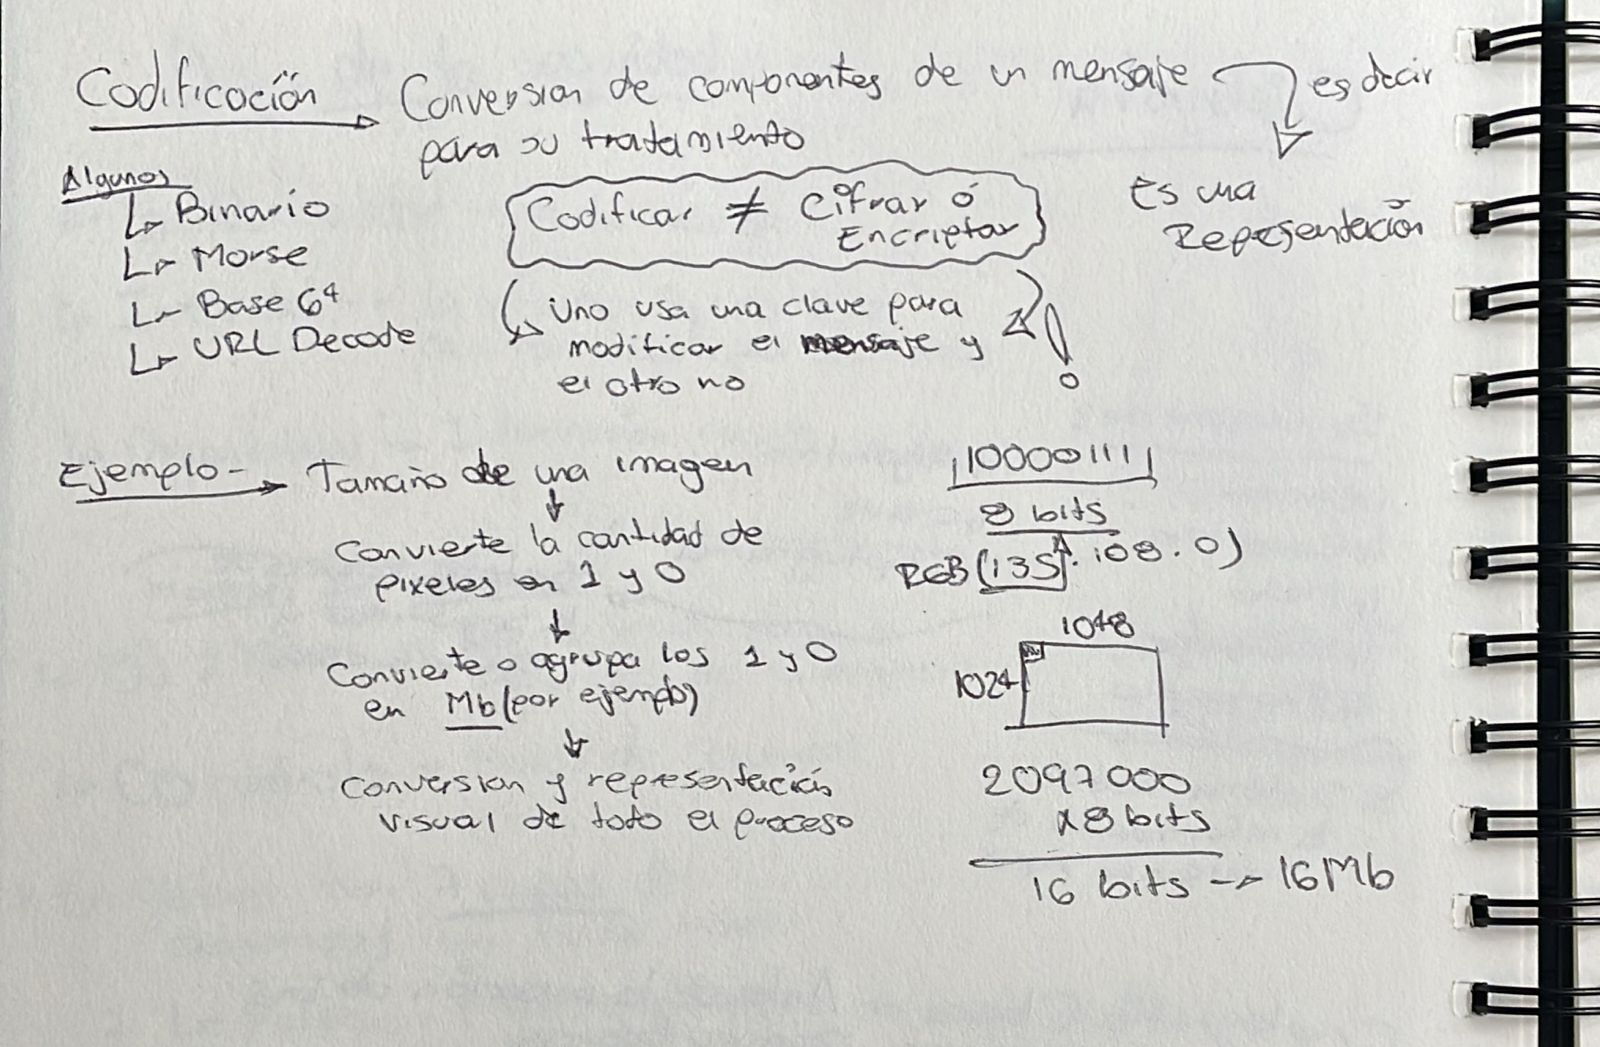 Codificación
Conversion de componentes de un mensaje
para su tratamiento
es decir
Es una
Representación
Algunos
Binario
Morse
Base 64
URL Decode
Codificar ≠ Cifrar ó
Encriptar
Uno usa una clave para
modificar el mensaje y
el otro no
!
Ejemplo
Tamaño de una imagen
Convierte la cantidad de
pixeles en 1 y 0
Convierte o agrupa los 1 y 0
en Mb (por ejemplo)
Conversion y representación
visual de todo el proceso
10000111
8 bits
RGB (135.108.0)
1048
1024
2097000
x8 bits
16 bits → 16 Mb